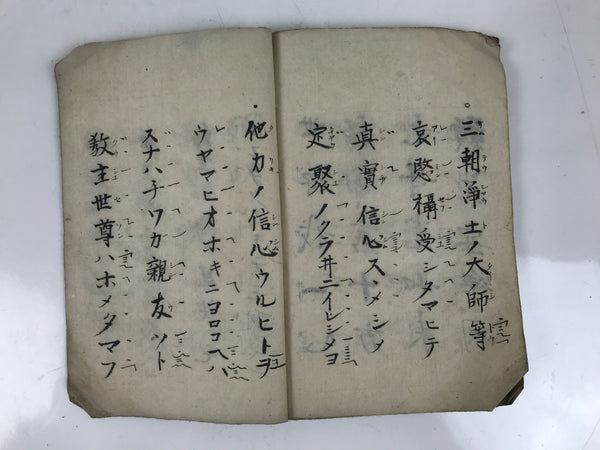 三朝淨土ノ大師等
哀愍攝受シタマヒテ
真實信心スヽメシメ
定聚ノクラヰニイレシメヨ
他力ノ信心ウルヒトヲ
ウヤマヒオホキニヨロコヘハ
スナハチワカ親友ソト
教主世尊ハホメタマフ